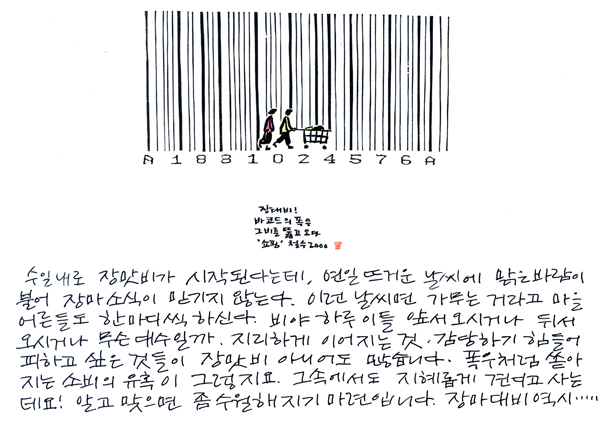 A1831024576A
장대비!
바코드의 폭우
그 비를 뚫고 오다.
'쇼핑' 철수2000
수일내로 장맛비가 시작된다는데, 연일 뜨거운 날씨에 맑은바람이
불어 장마 소식이 믿기지 않는다. 이런 날씨면 가무는 거라고 마을
어른들도 한마디씩 하신다. 비야 하루 이틀 앞서 오시거나 뒤서
오시거나 무슨 대수일까. 지리하게 이어지는 것, 감당하기 힘들어
피하고 싶은 것들이 장맛비 아니어도 많습니다. 폭우처럼 쏟아
지는 소비의 유혹이 그렇지요. 그속에서도 지혜롭게 견디고 사는
데요! 알고 맞으면 좀 수월해지기 마련입니다. 장마대비 역시.....